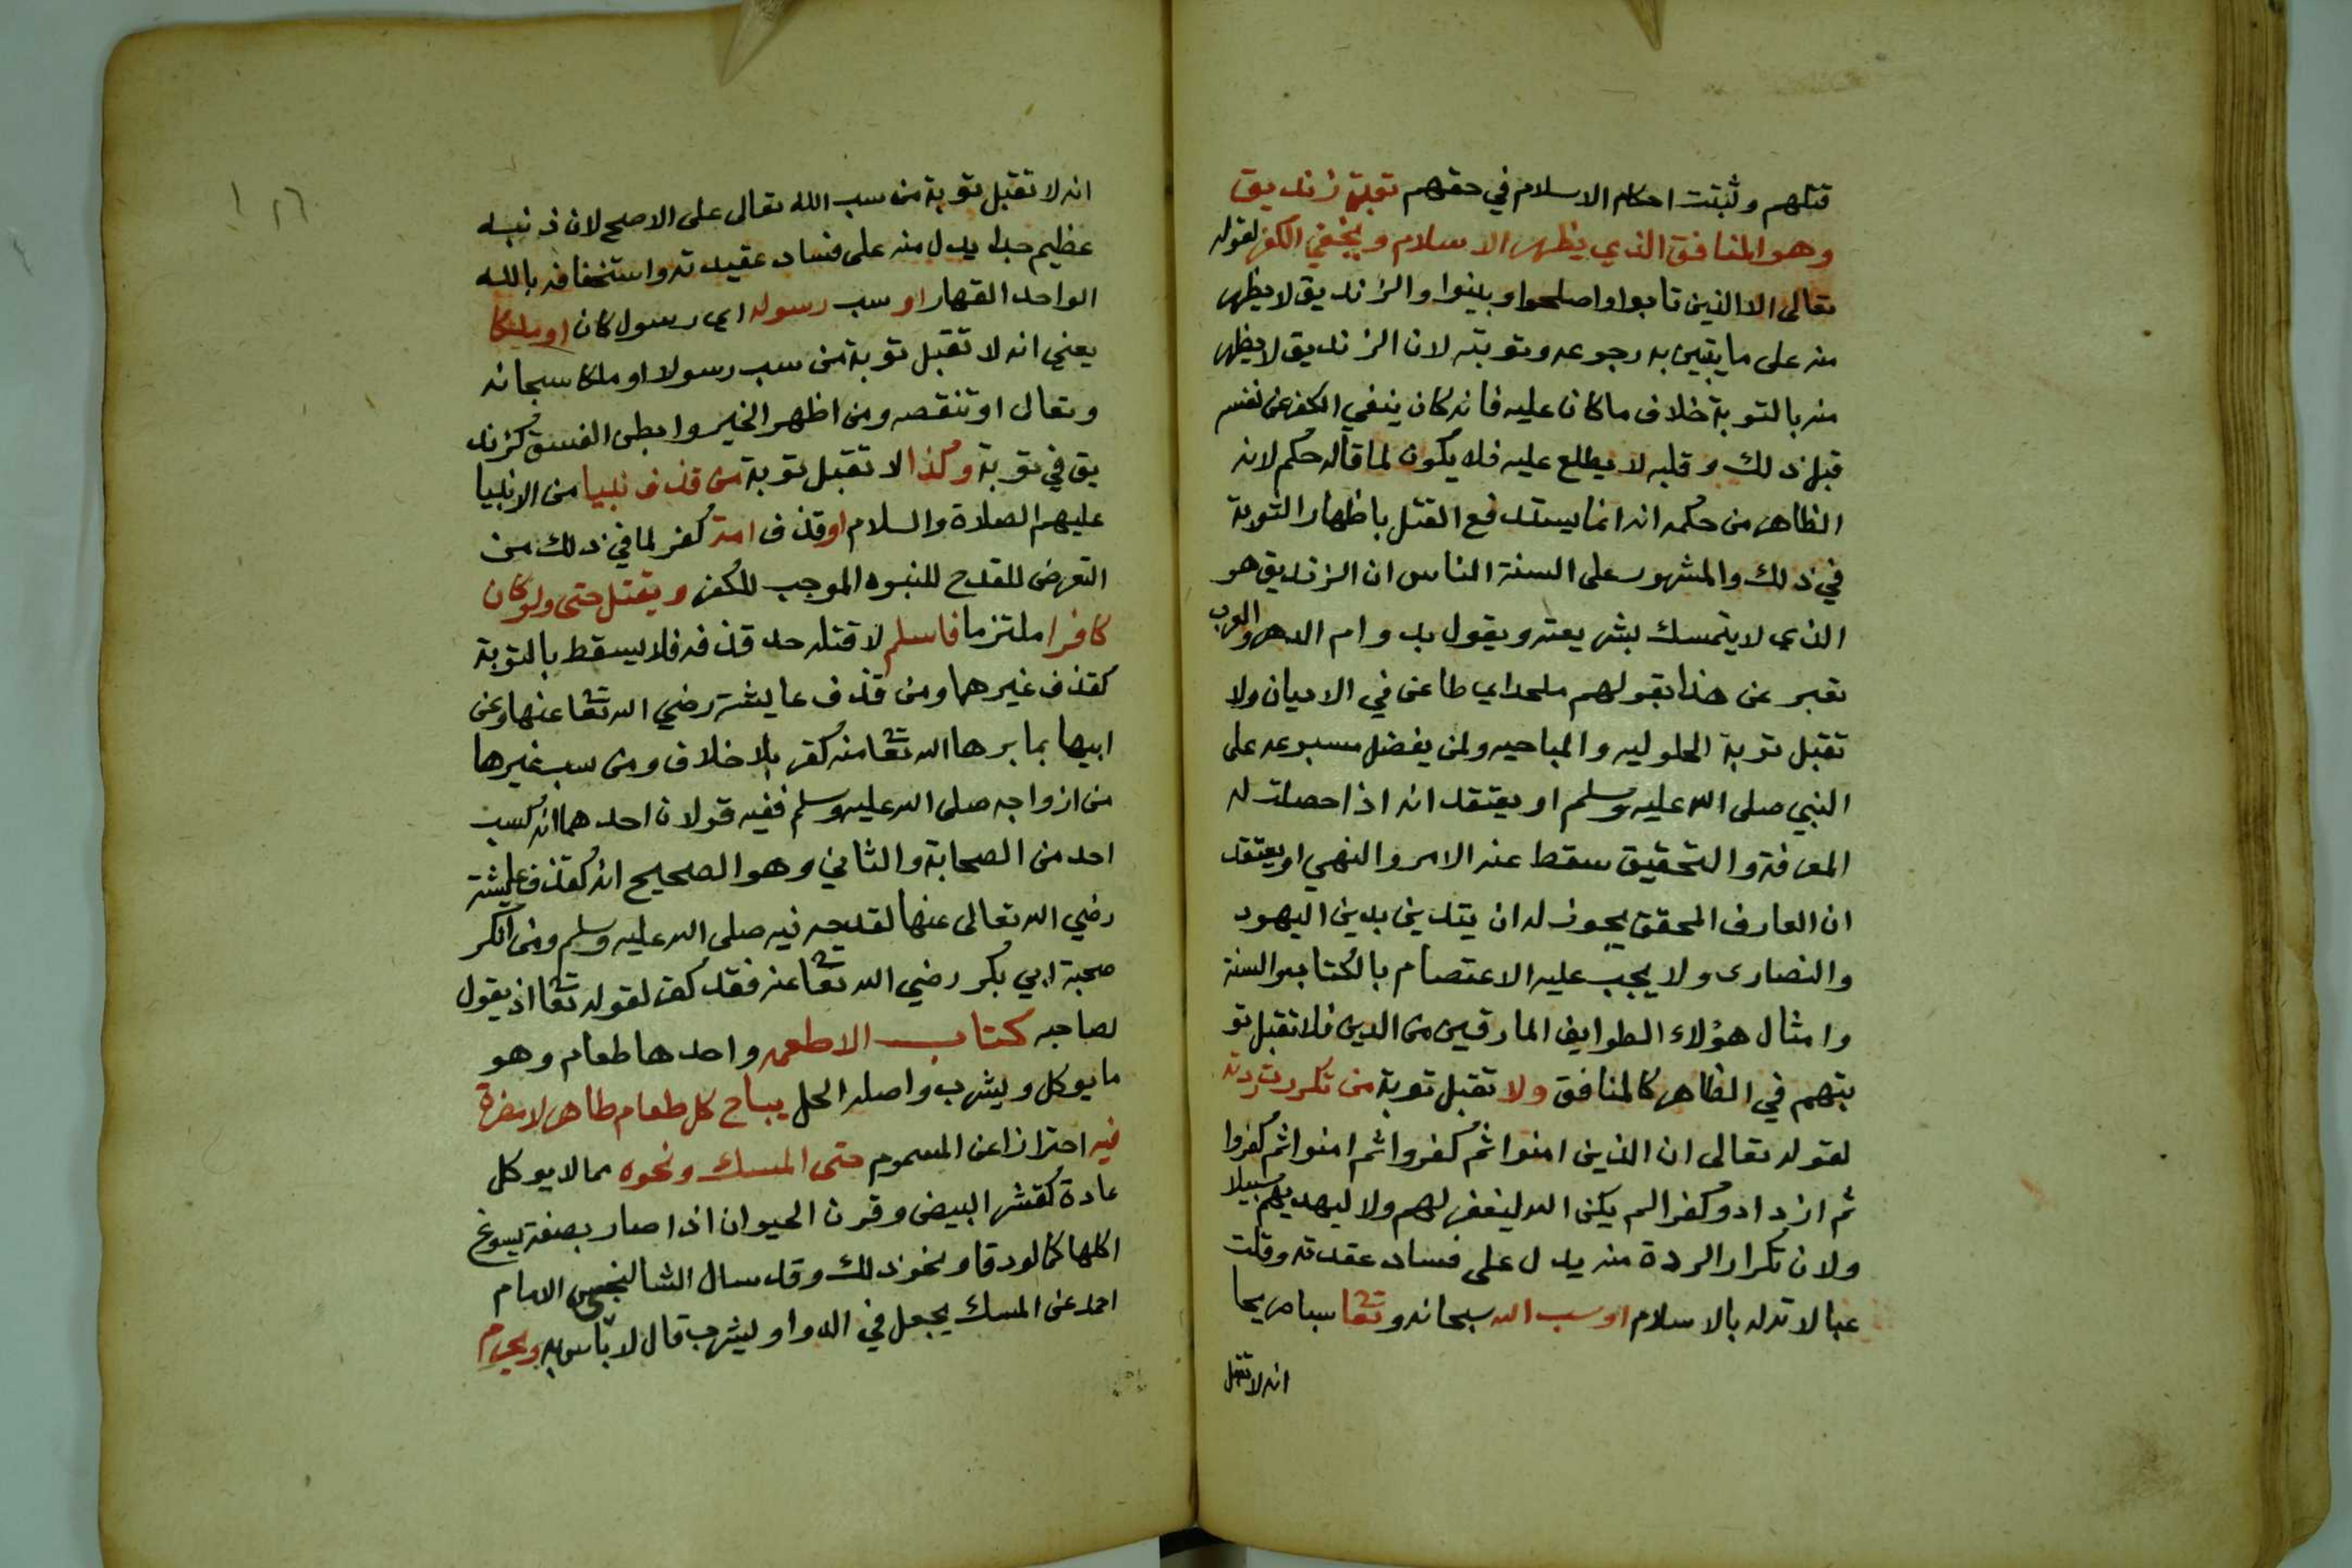 قتلهم وثبتت احكام الاسلام في حقهم توبة زنديق
وهو المنافق الذي يظهر الاسلام ويخفي الكفر لقوله
تعالى الا الذين تابوا واصلحوا وبينوا والزنديق لا يظهر
منه على ما يتبين به رجوعه وتوبته لان الزنديق لا يظهر
منه بالتوبة خلاف ما كان عليه فانه كان ينفي الكفر عن نفسه
قبل ذلك وقلبه لا يطلع عليه فلا يكون لما قاله حكم لانه
الظاهر من حكمه انه انما يستدفع القتل باظهار التوبة
في ذلك والمشهور على السنة الناس ان الزنديق هو
الذي لا يتمسك بشريعته ويقول بدوام الدهر والعرب
تعبر عن هذا بقولهم ملحد اي طاعن في الاديان ولا
تقبل توبة الحلوليه والمباحيه ولمن يفضل مسبوعه على
النبي صلى الله عليه وسلم او يعتقد انه اذا حصلت له
المعرفة والتحقيق سقط عنه الامر والنهي او يعتقد
ان العارف المحقق يجوز له ان يتدين بدين اليهود
والنصارى ولا يجب عليه الاعتصام بالكتاب والسنة
وامثال هؤلاء الطوايف المارقين من الدين فلا تقبل تو
بتهم في الظاهر كالمنافق ولا تقبل توبة من تكررت ردته
لقوله تعالى ان الذين امنوا ثم كفروا ثم امنوا ثم كفروا
ثم ازدادو كفرا لم يكن الله ليغفر لهم ولا ليهديهم سبيلا
ولان تكرار الردة منه يدل على فساد عقدته وقلت
عبالاته له بالاسلام او سب الله سبحانه وتعا سبا صريحا
انه لا تقبل
١٢٦
انه لا تقبل توبة من سب الله تعالى على الاصح لان ذنبه
عظيم جدا يدل منه على فساد عقيدته واستخفافه بالله
الواحد القهار او سب رسوله اي رسول كان او ملكا
يعني انه لا تقبل توبة من سب رسولا او ملكا سبحانه
وتعالى او تنقصه ومن اظهر الخير وابطن الفسق كزند
يق في توبة وكذا لا تقبل توبة من قذف نبيا من الانبيا
عليهم الصلاة والسلام او قذف امه كفر لما في ذلك من
التعرض للقدح للنبوه الموجب للكفر ويقتل حتى ولو كان
كافرا ملتزما فاسلم لا قتله حد قذفه فلا يسقط بالتوبة
كقذف غيرهما ومن قذف عايشة رضي الله تعا عنها وعن
ابيها بما براها الله تعا منه كفر بلا خلاف ومن سب غيرها
من ازواجه صلى الله عليه وسلم ففيه قولان احدهما انه كسب
احد من الصحابة والثاني وهو الصحيح انه كقذف عايشة
رضي الله تعالى عنها لقدحه فيه صلى الله عليه وسلم ومن انكر
صحبة ابي بكر رضي الله تعا عنه فقد كفر لقوله تعا اذ يقول
لصاحبه كتاب الاطعمه واحدها طعام وهو
ما يوكل ويشرب واصله الحل يباح كل طعام طاهر لا مضرة
فيه احترازا عن المسموم حتى المسك ونحوه مما لا يوكل
عادة كقشر البيض وقرن الحيوان اذا صار بصفة يسوغ
اكلها كما لو دقا ونحو ذلك وقد سال الشالنجي الامام
احمد عن المسك يجعل في الدوا ويشرب قال لا باس به ويحرم